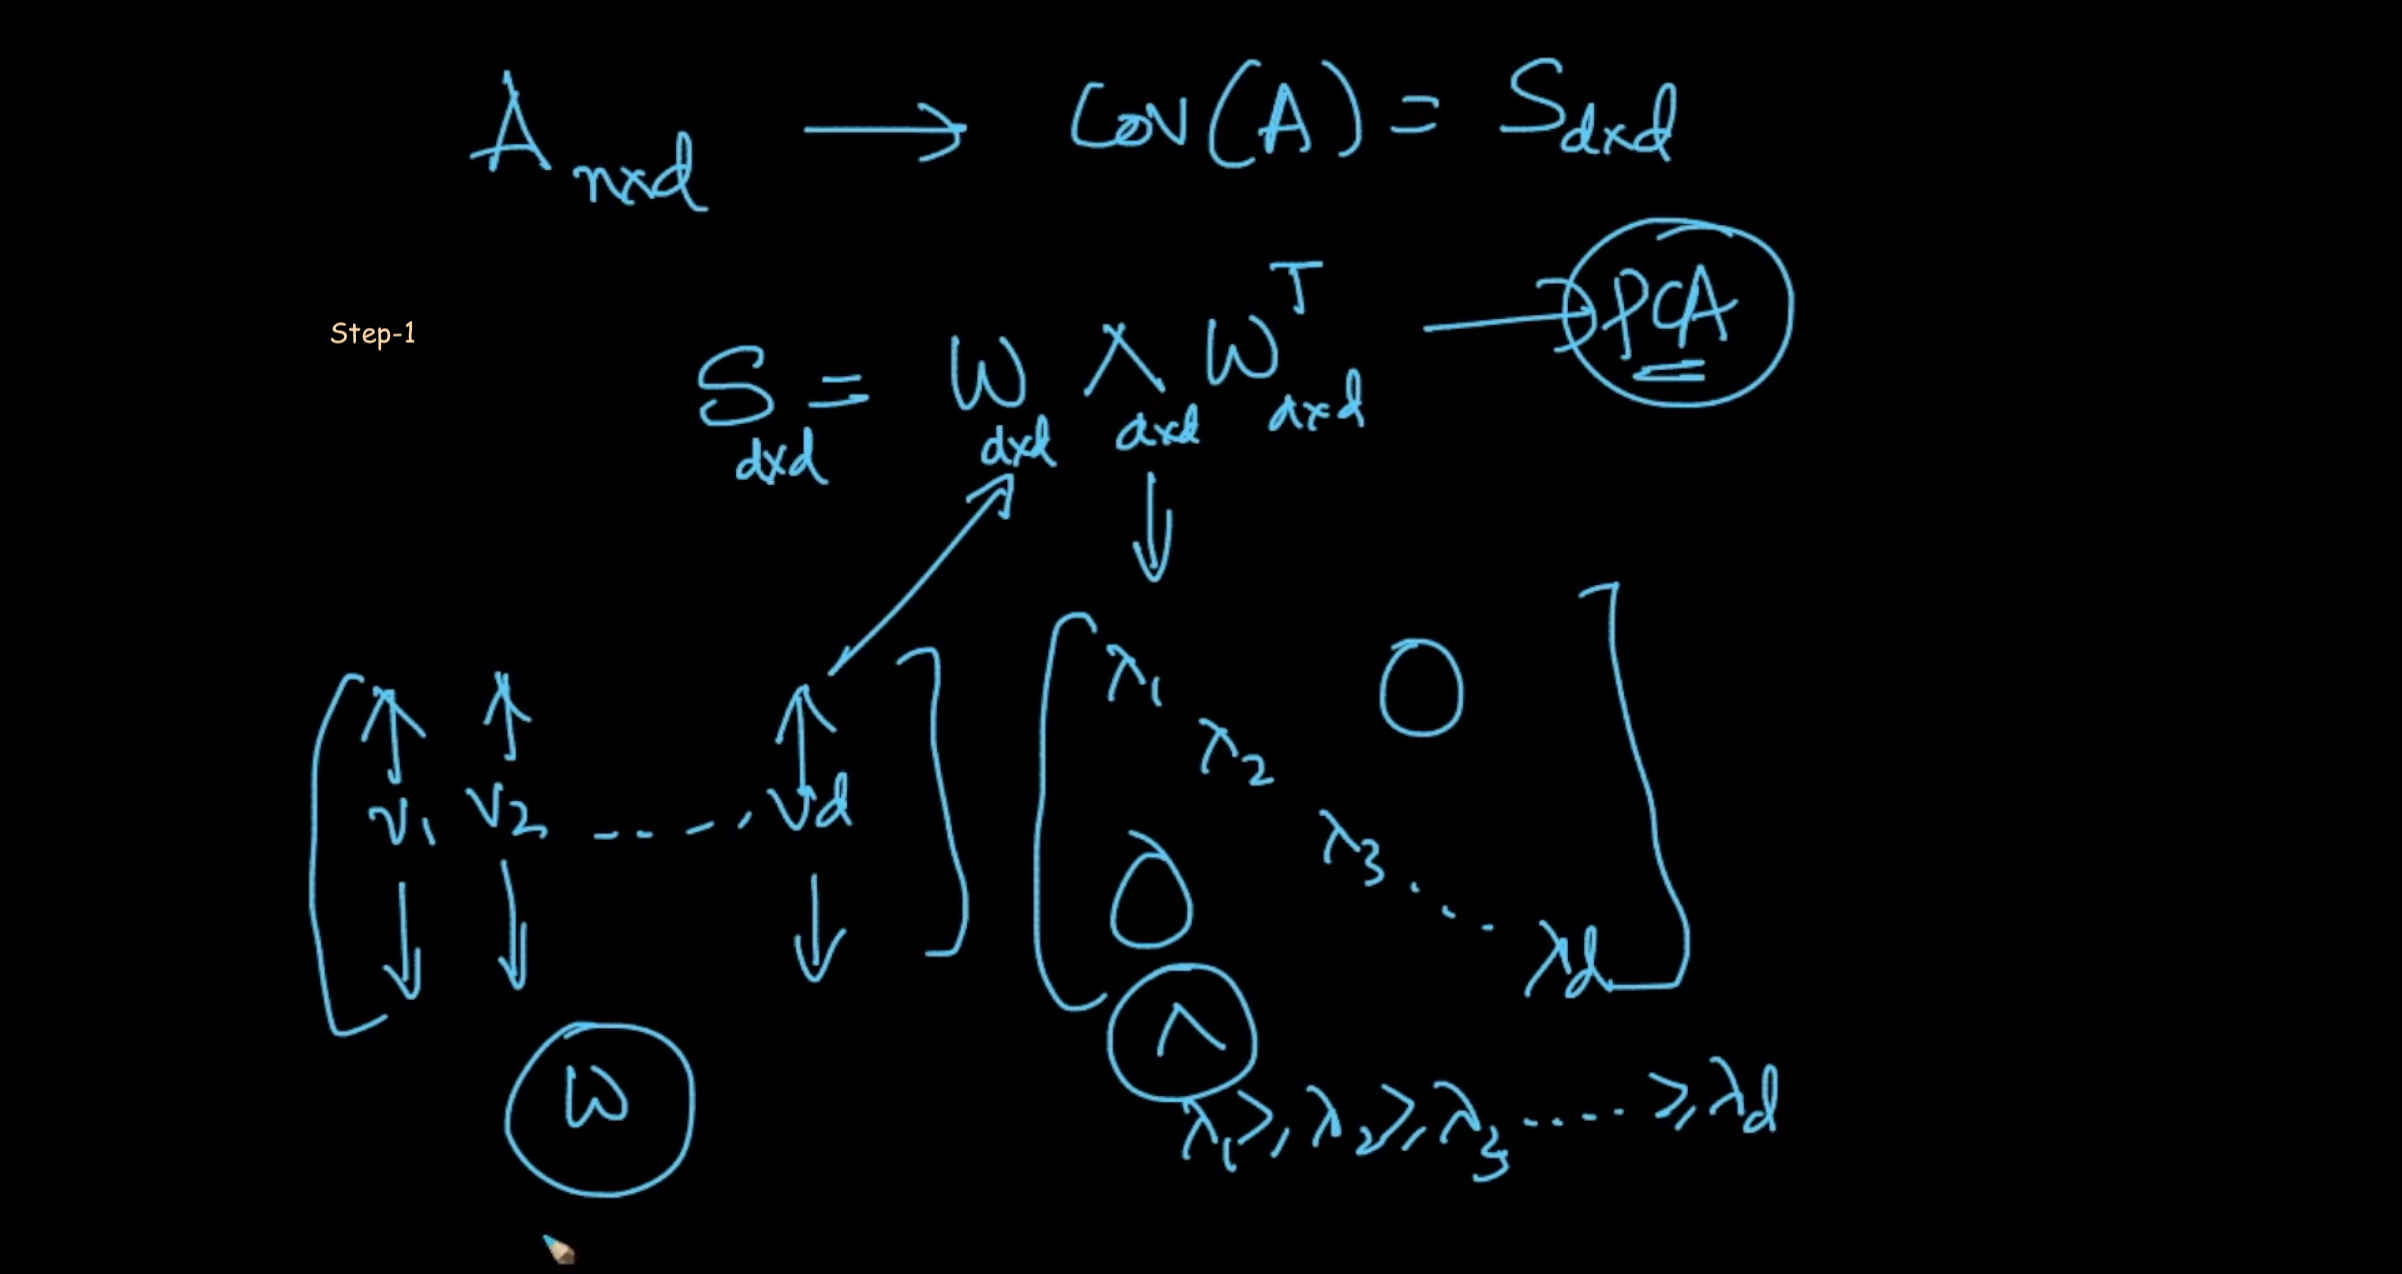 A n×d → Cov(A) = S d×d
Step-1
S d×d = W d×d Λ d×d Wᵀ d×d → PCA
[ v₁ v₂ ----, vd ]
[ λ₁ 0
λ₂
λ₃ ...
0 λd ]
W
Λ
λ₁ ≥, λ₂ ≥, λ₃ ..... ≥, λd